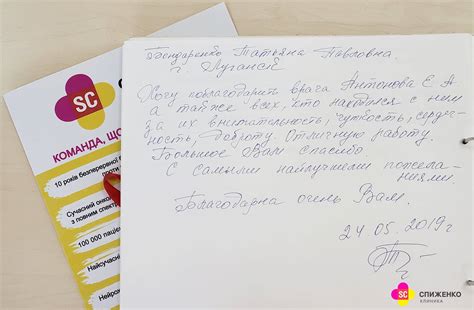 SC
С
КОМАНДА, ЩО
10 років безперервної б
проти
Сучасний онко
з повним спектр
100 000 паціє
Найсучасні
Нейрох
Бондаренко Татьяна Павловна
г. Луганск
Хочу поблагодарить врача Антонова Е А
а также всех, кто находился с ним
за их внимательность, чуткость, сердеч-
ность, доброту. Отличную работу
Большое Вам спасибо
С самыми наилучшими пожела-
ниями.
Благодарна очень Вам.
24.05.2019г
SC СПИЖЕНКО
КЛИНИКА